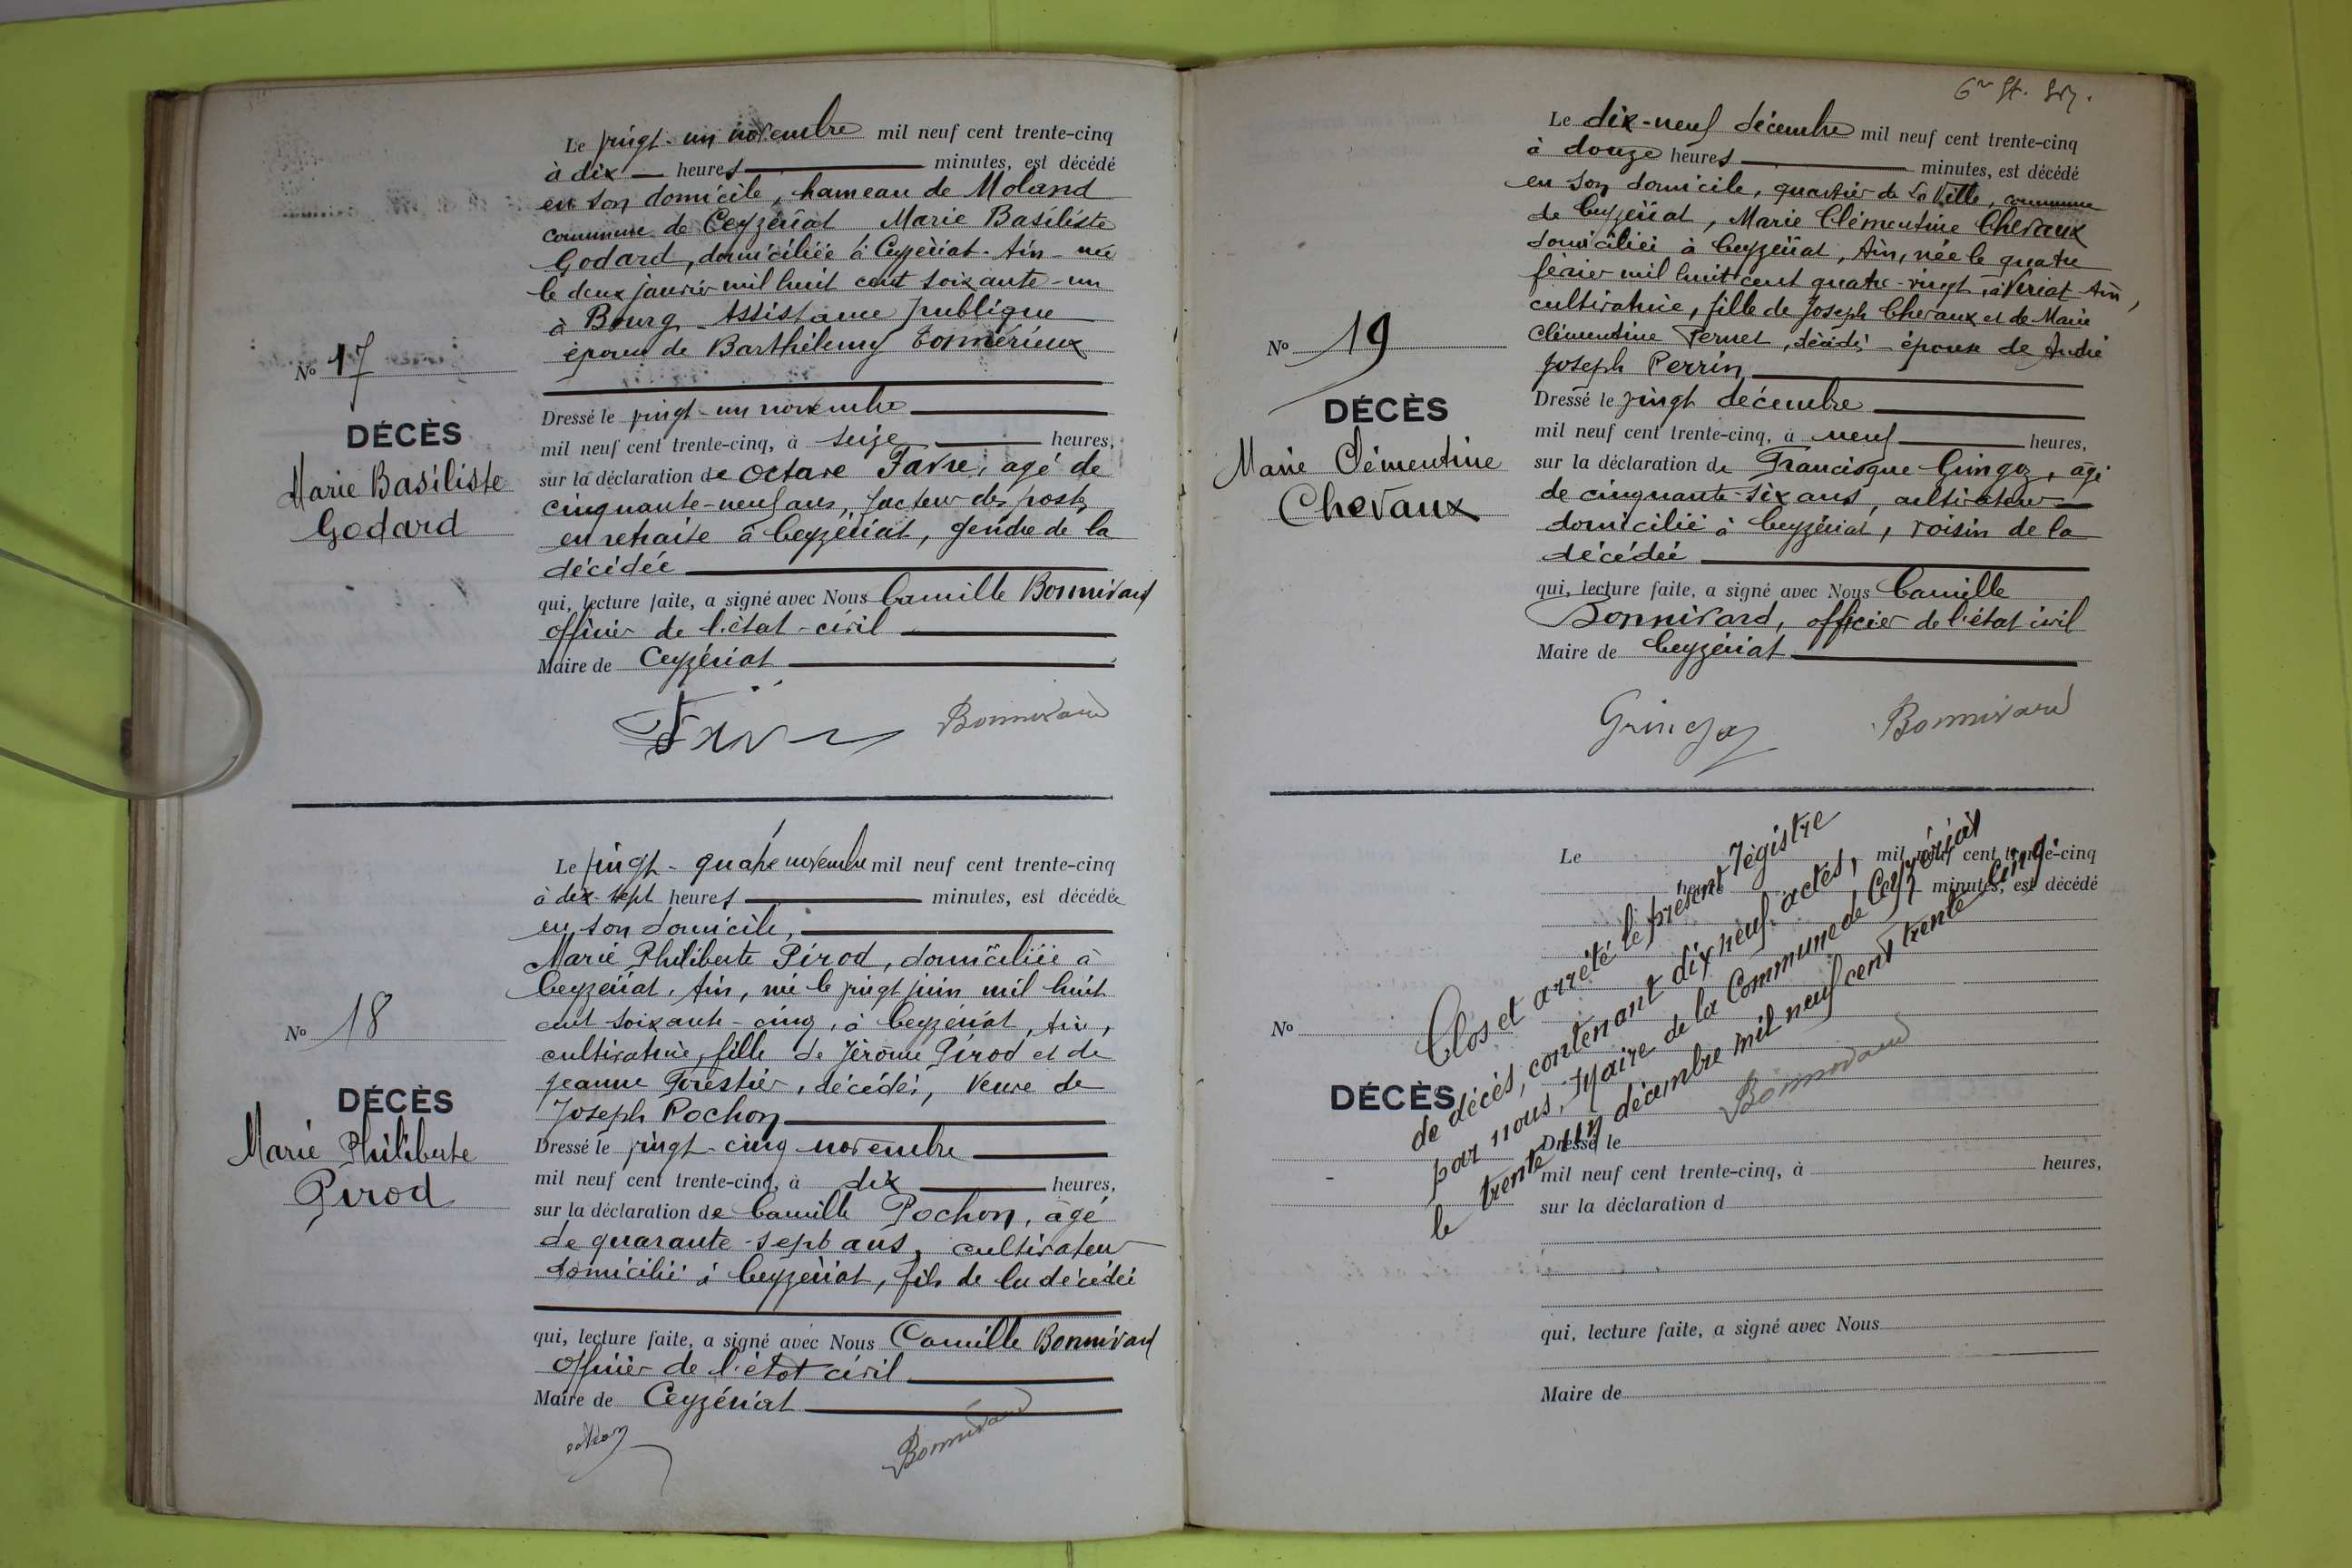 Le vingt-un novembre mil neuf cent trente-cinq
à dix heures minutes, est décédé
en son domicile, hameau de Moland
commune de Ceyzériat Marie Basiliste
Godard, domiciliée à Ceyzériat - Ain - née
le deux janvier mil huit cent soixante-un
à Bourg - Assistance publique
épouse de Barthélemy
No 17
DÉCÈS
Marie Basiliste
Godard
Dressé le vingt-un novembre
mil neuf cent trente-cinq, à seize heures,
sur la déclaration de Octave Favre, agé de
cinquante-neuf ans, facteur des postes
en retraite à Ceyzériat, gendre de la
décédée
qui, lecture faite, a signé avec Nous Camille Bonnivard
officier de l'état-civil
Maire de Ceyzériat
Favre Bonnivard
Le vingt-quatre novembre mil neuf cent trente-cinq
à dix-sept heures minutes, est décédée
en son domicile,
Marie Philiberte Pirod, domiciliée à
Ceyzériat, Ain, née le vingt juin mil huit
cent soixante-cinq, à Ceyzériat, Ain,
cultivatrice, fille de Jérôme Pirod et de
Jeanne Forestier, décédés, veuve de
Joseph Pochon
No 18
DÉCÈS
Marie Philiberte
Pirod
Dressé le vingt-cinq novembre
mil neuf cent trente-cinq, à dix heures,
sur la déclaration de Camille Pochon, âgé
de quarante-sept ans, cultivateur
domicilié à Ceyzériat, fils de la décédée
qui, lecture faite, a signé avec Nous Camille Bonnivard
officier de l'état civil
Maire de Ceyzériat
Bonnivard
Le dix-neuf décembre mil neuf cent trente-cinq
à douze heures minutes, est décédé
en son domicile, quartier de La Ville, commune
de Ceyzériat, Marie Clémentine Chevaux
domiciliée à Ceyzériat, Ain, née le quatre
février mil huit cent quatre-vingt, à Viriat Ain,
cultivatrice, fille de Joseph Chevaux et de Marie
Clémentine Pernet, décédés - épouse de André
Joseph Perrin
No 19
DÉCÈS
Marie Clémentine
Chevaux
Dressé le vingt décembre
mil neuf cent trente-cinq, à neuf heures,
sur la déclaration de Francisque Gringoz, âgé
de cinquante-six ans, cultivateur
domicilié à Ceyzériat, voisin de la
décédée
qui, lecture faite, a signé avec Nous Camille
Bonnivard, officier de l'état civil
Maire de Ceyzériat
Gringoz Bonnivard
Le mil neuf cent trente-cinq
heures minutes, est décédé
Clos et arrêté le présent régistre
de décès, contenant dix neuf actes,
par nous, Maire de la Commune de Ceyzériat
le trente un décembre mil neuf cent trente cinq.
Bonnivard
No
DÉCÈS
Dressé le
mil neuf cent trente-cinq, à heures,
sur la déclaration d
qui, lecture faite, a signé avec Nous
Maire de